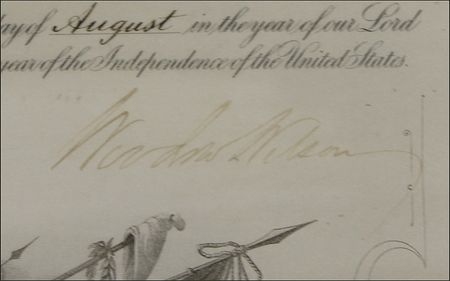 day of August in the year of our Lord
year of the Independence of the United States.
Woodrow Wilson